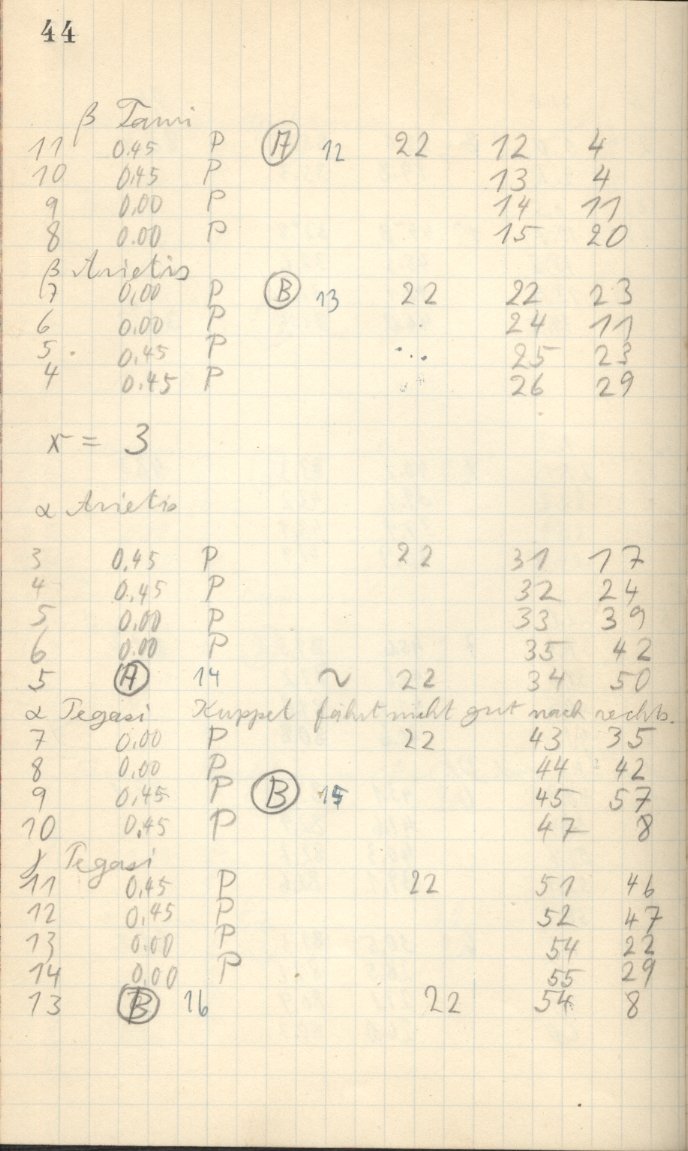 44
β Tauri
11 0.45 P A 12 22 12 4
10 0.45 P 13 4
9 0.00 P 14 11
8 0.00 P 15 20
β Arietis
7 0.00 P B 13 22 22 23
6 0.00 P 24 11
5 0.45 P 25 23
4 0.45 P 26 29
x = 3
α Arietis
3 0.45 P 22 31 17
4 0.45 P 32 24
5 0.00 P 33 39
6 0.00 P 35 42
5 A 14 ~ 22 34 50
α Pegasi Kuppel fährt nicht gut nach rechts.
7 0.00 P 22 43 35
8 0.00 P 44 42
9 0.45 P B 15 45 57
10 0.45 P 47 8
γ Pegasi
11 0.45 P 22 51 46
12 0.45 P 52 47
13 0.00 P 54 22
14 0.00 P 55 29
13 B 16 22 54 8